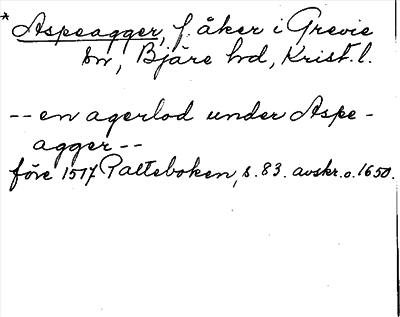 * Aspeagger, f. åker i Grevie
sn, Bjäre hd, Krist. l.
-- en agerlod under Aspe-
agger --
före 1517 Palteboken, s. 83. avskr. o. 1650.